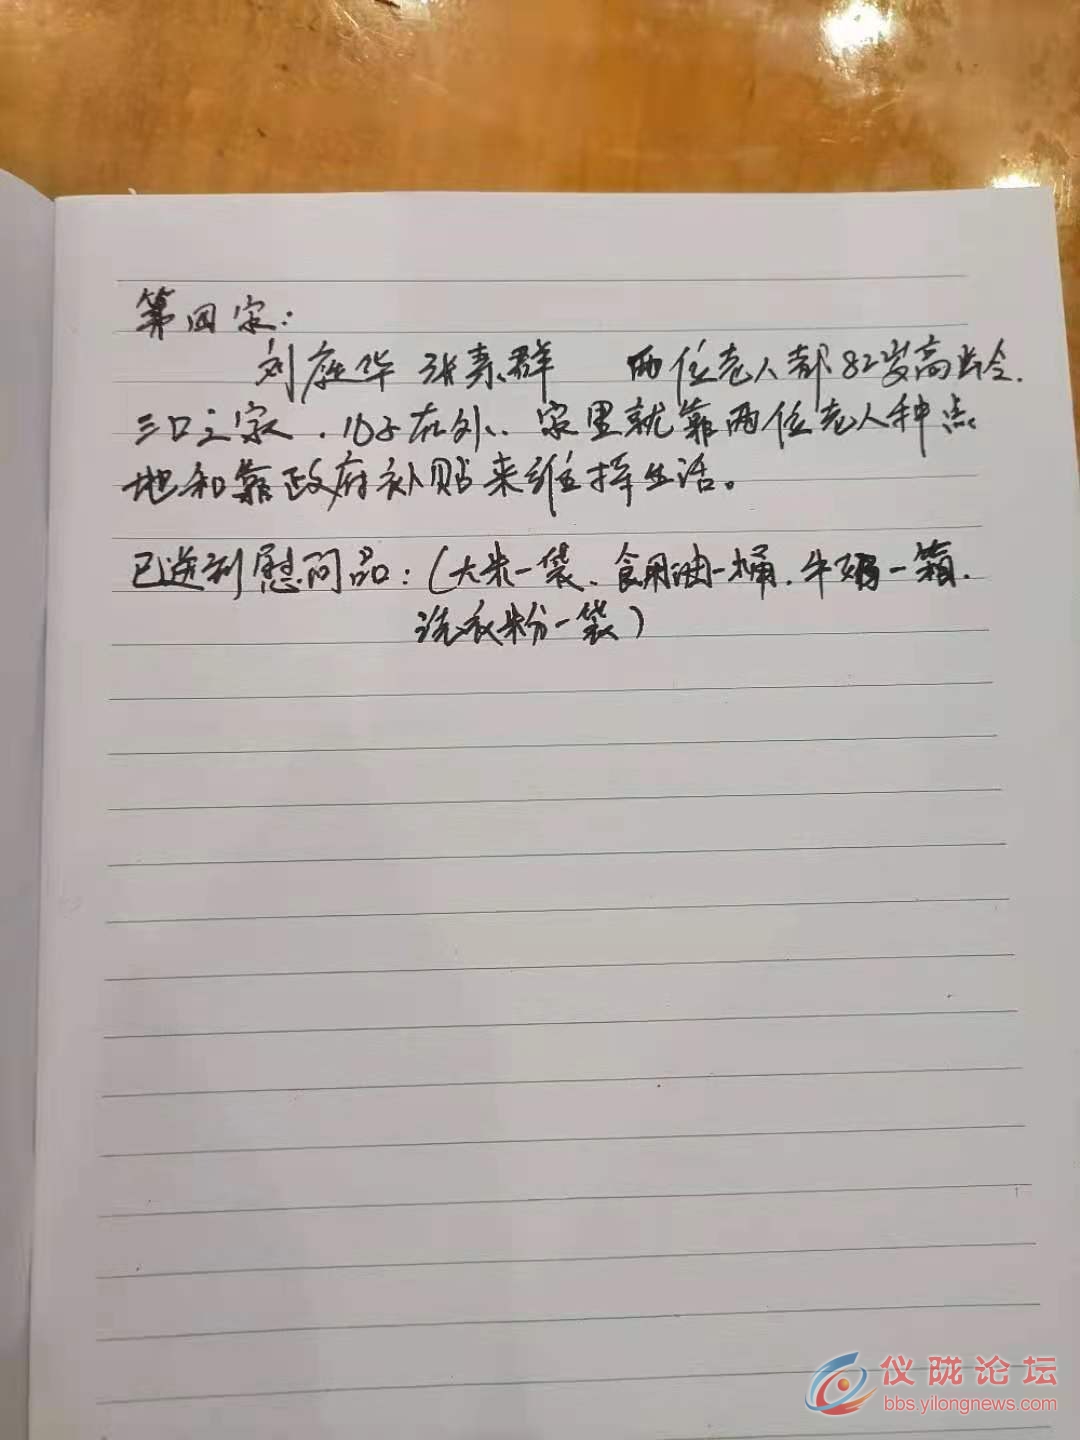 第四家:
刘庭华 张素群 两位老人都82岁高龄.
三口之家,儿子在外、家里就靠两位老人种点
地和靠政府补贴来维择生活。
已送到慰问品:(大米一袋、食用油一桶、牛奶一箱、
洗衣粉一袋)
仪陇论坛
bbs.yilongnews.com